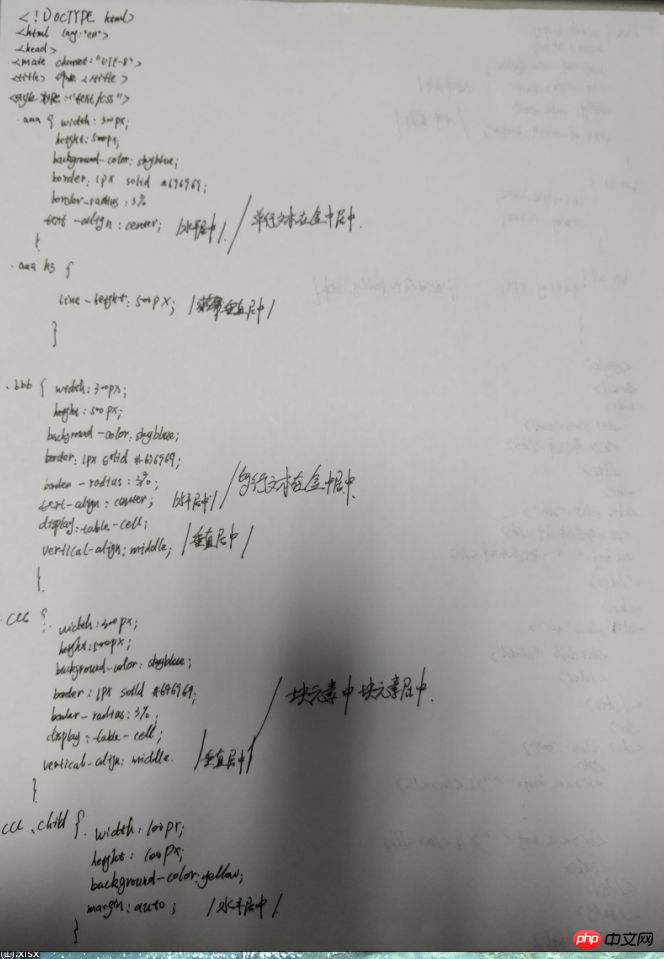 <!DOCTYPE html>
<html lag:"en">
<head>
<mate charset="UTF-8">
<title> </title>
<style type:"text/css">
.aaa { width: 300px;
height: 500px;
background-color: skyblue;
border: 1px solid #696969;
border-radius: 3%
text-align: center; /水平居中/ / 单行文本在盒中居中.
}
.aaa h3 {
line-height: 500px; /垂直居中/
}
.bbb { width: 300px;
height: 500px;
background-color: skyblue;
border: 1px solid #696969;
border-radius: 3%;
text-align: center; /水平居中/ / 多行文本在盒中居中.
display: table-cell;
vertical-align: middle; /垂直居中/
}
.ccc { width: 300px;
height: 500px;
background-color: skyblue;
border: 1px solid #696969;
border-radius: 3%;
display: table-cell; / 块元素中块元素居中.
vertical-align: middle. /垂直居中/
}
ccc .child { width: 100px;
height: 100px;
background-color: yellow;
margin: auto; /水平居中/.
}
php 中文网
(1).xlsx